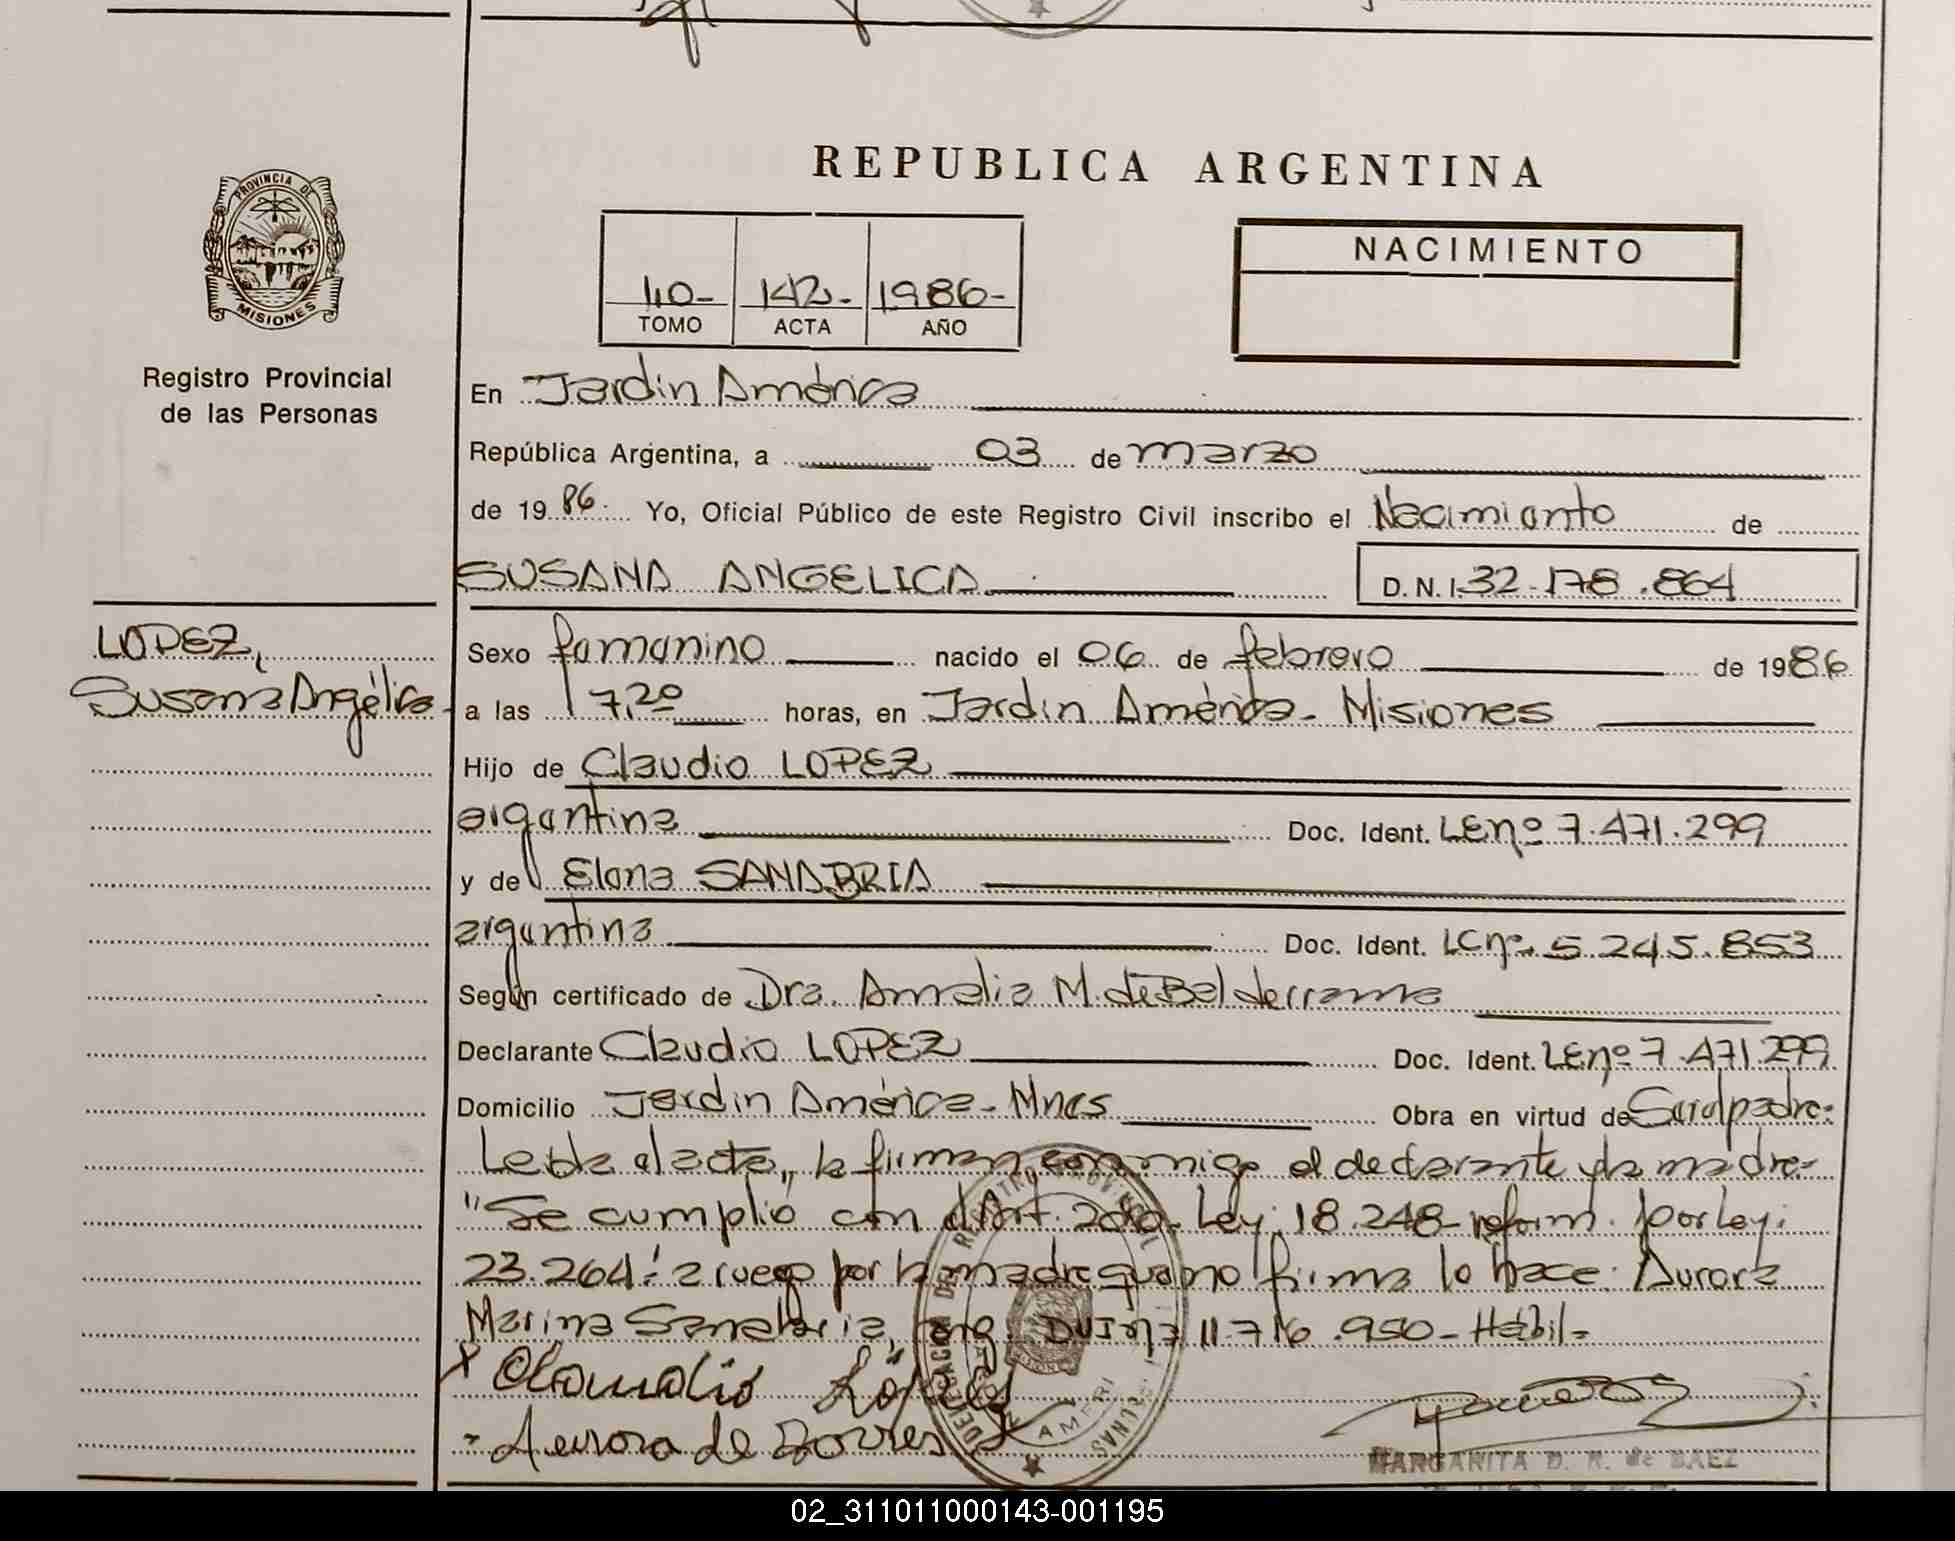 REPUBLICA ARGENTINA
PROVINCIA DE MISIONES
Registro Provincial
de las Personas
NACIMIENTO
110- 142- 1986-
TOMO ACTA AÑO
En Jardin América
República Argentina, a 03 de marzo
de 1986. Yo, Oficial Público de este Registro Civil inscribo el Nacimiento de
SUSANA ANGELICA
D. N. I. 32.178.864
LOPEZ,
Susana Angélica-
Sexo femenino nacido el 06 de febrero de 1986
a las 17,20 horas, en Jardin América- Misiones
Hijo de Claudio LOPEZ
argentina Doc. Ident. LEnº 7.471.299
y de Elena SANABRIA
argentina Doc. Ident. LCnº. 5.245.853
Según certificado de Dra. Amalia M. de Balderrama
Declarante Claudio LOPEZ Doc. Ident. LEnº 7.471.299
Domicilio Jardin América- Mnes Obra en virtud de Ser el padre:
Leida el acta, la firman conmigo el declarante y la madre:
"Se cumplió con el Art. 2do. Ley: 18.248- reform. por Ley:
23.264" a ruego por la madre que no firma lo hace: Aurora
Marina Sanabria, arg. DNI nº 11.716.950- Hábil-
x Claudio López
- Aurora de Torres
MARGARITA D. R. de BAEZ
02_311011000143-001195